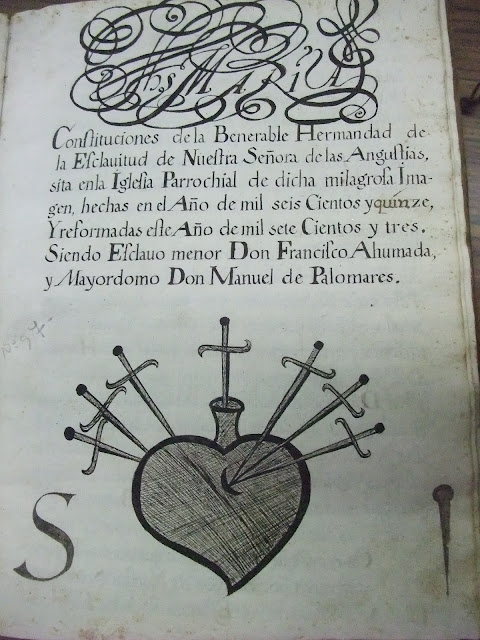 Jhs MARIA
Constituciones de la Benerable Hermandad de
la Esclauitud de Nuestra Señora de las Angustias,
sita en la Iglesia Parrochial de dicha milagrosa Ima-
gen, hechas en el Año de mil seis Cientos y quinze,
Y reformadas este Año de mil sete Cientos y tres.
Siendo Esclauo menor Don Francisco Ahumada,
y Mayordomo Don Manuel de Palomares.
Nº 97
S